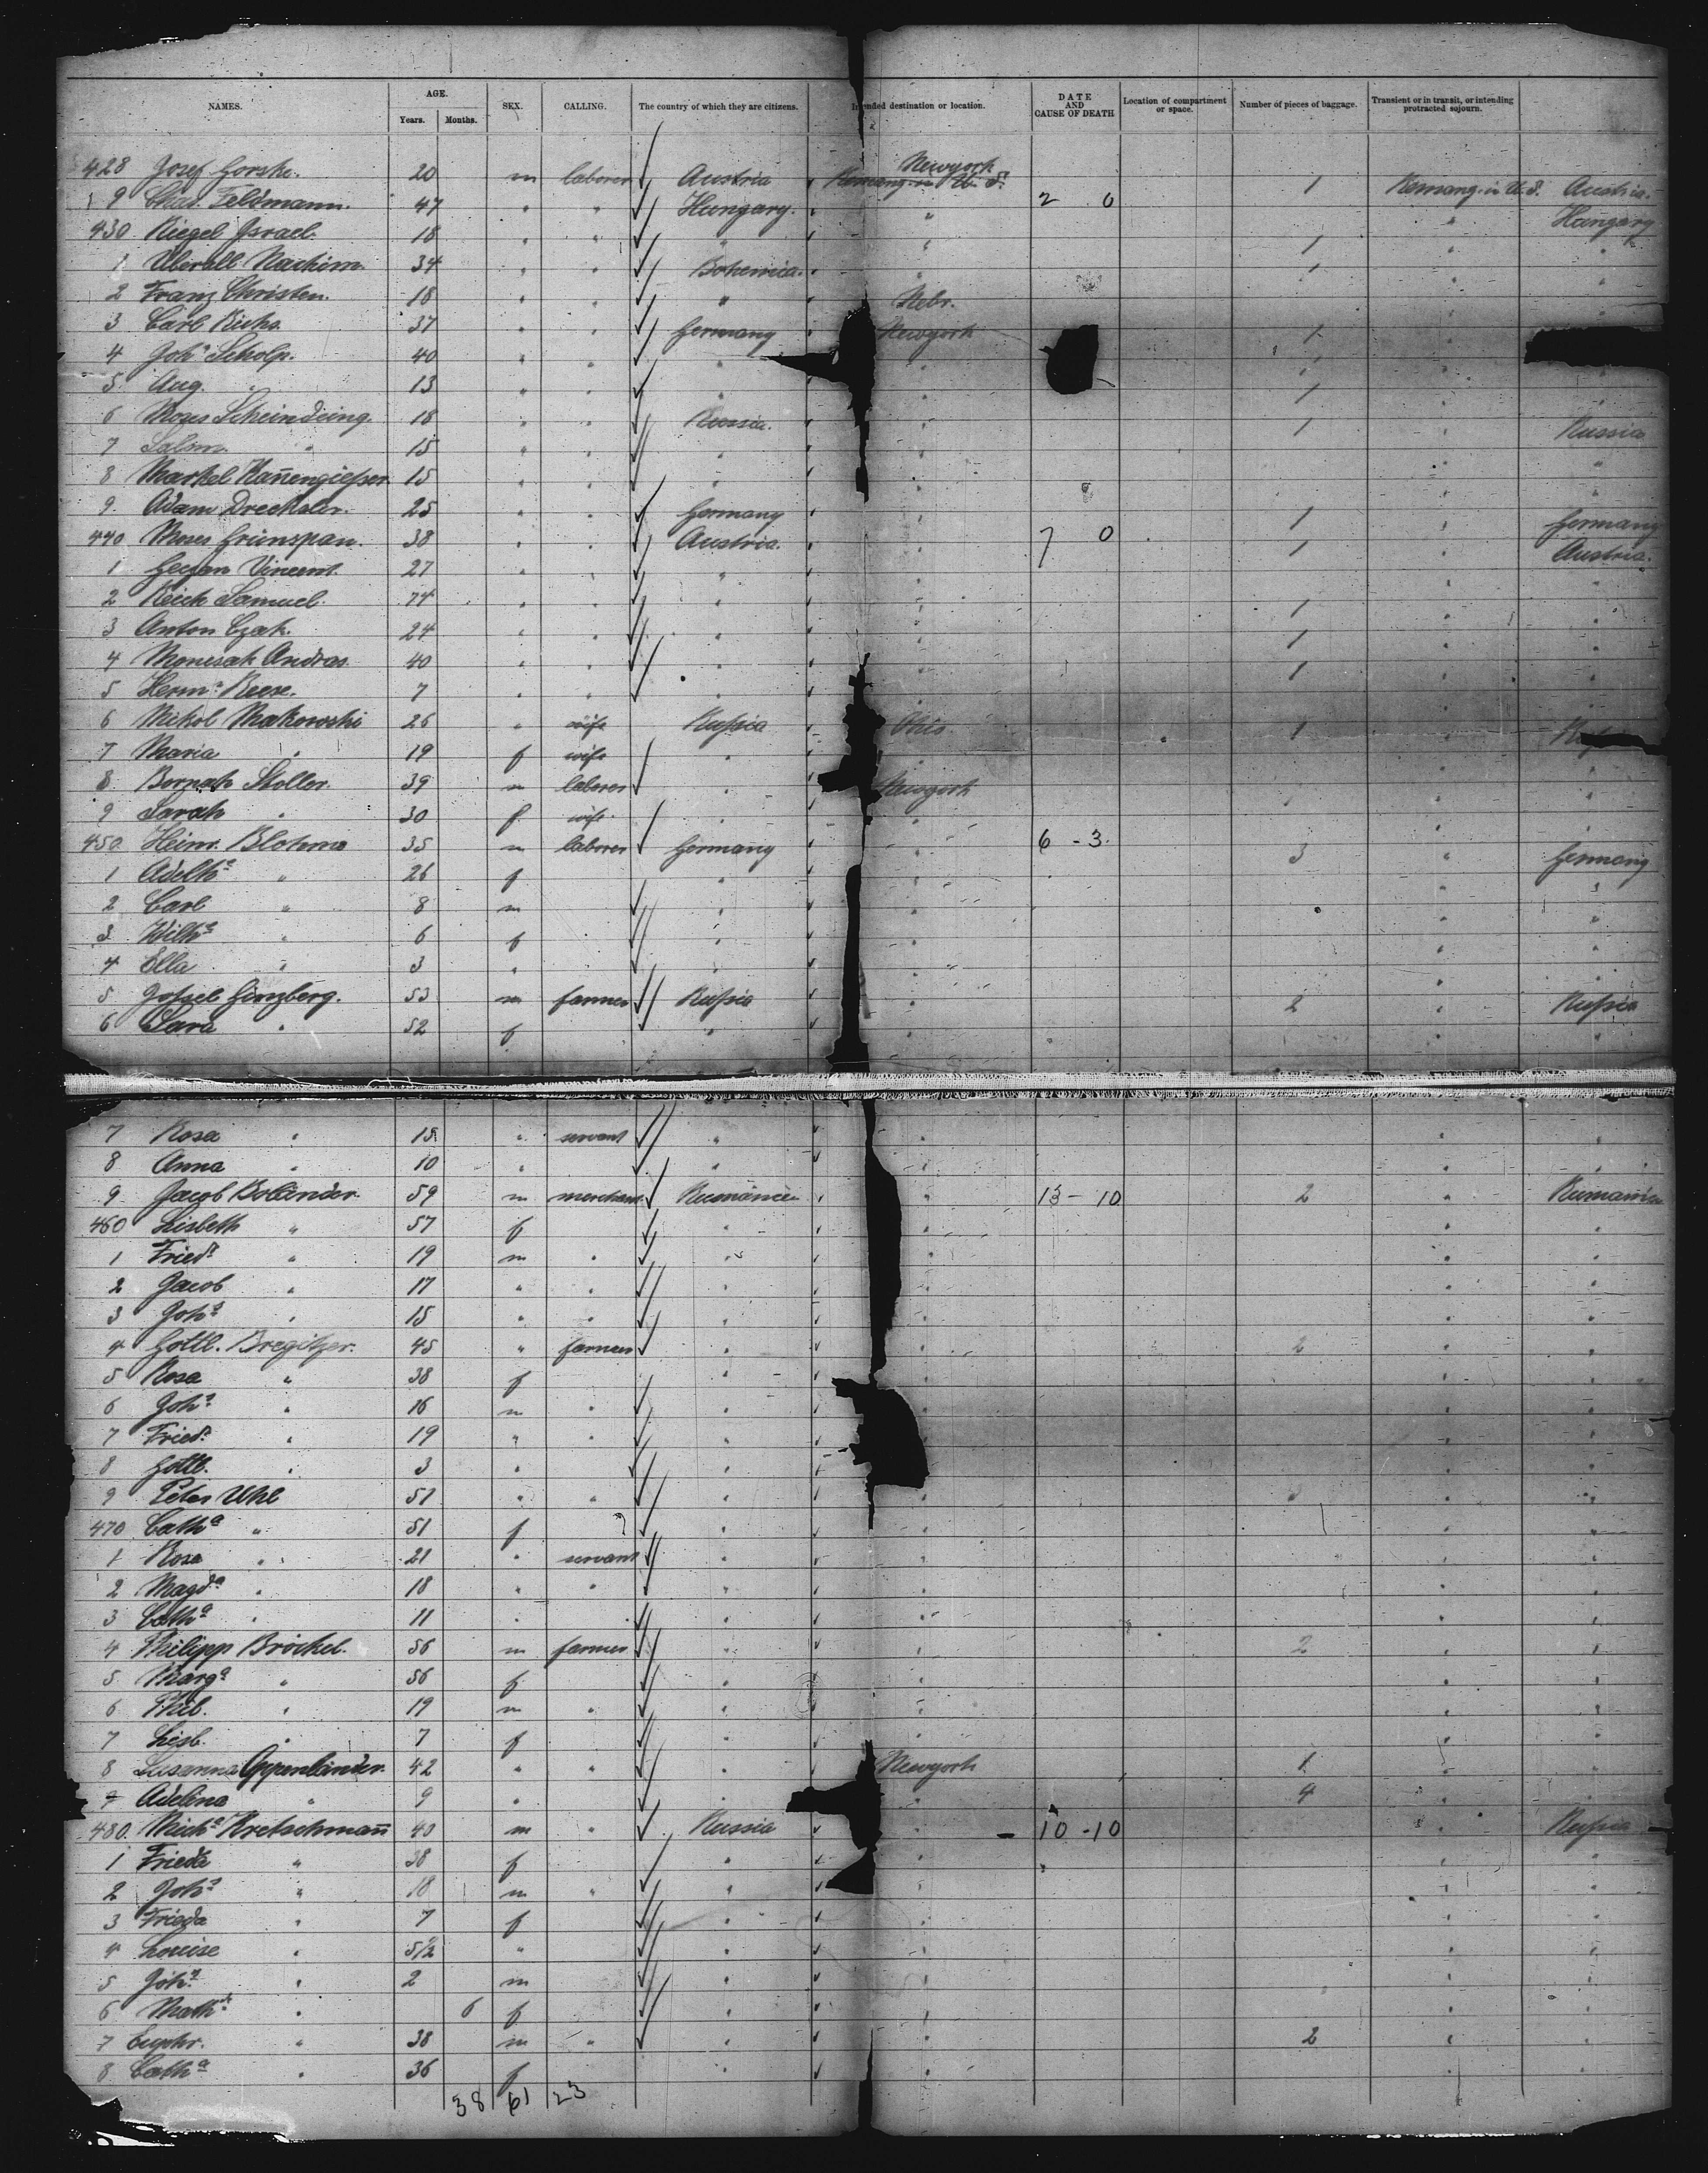 NAMES. AGE. SEX. CALLING. The country of which they are citizens. Intended destination or location. DATE AND CAUSE OF DEATH Location of compartment or space. Number of pieces of baggage. Transient or in transit, or intending protracted sojourn.
Years. Months.
Newyork
428 Josef Gorske. 20 m laborer Austria Remang. in U. S. 1 Remang. in U. S. Austria.
9 Chas. Feldmann. 47 " " Hungary. " 2 0 " Hungary
430 Riegel Israel. 18 " " " " 1 " "
1 Uberall Nachim. 34 " " Bohemica. " 1 " "
2 Franz Christen. 18 " " " Nebr. " "
3 Carl Richs. 37 " " Germany Newyork 1 "
4 John Scholp. 40 " " " " " " "
5 Aug. " 13 " " " " 1 " "
6 Moses Scheindling. 18 " " Russia. " 1 " Russia
7 Salom. " 15 " " " " " "
8 Markel Kan̄engiesser. 15 " " " " " "
9. Adam Drechsler. 25 " " Germany " 1 " Germany
440 Moses Grünspan. 38 " " Austria. " 7 0 1 " Austria.
1 Vincent. 27 " " " " " "
2 Reich Samuel. 74 " " " " 1 " "
3 Anton Czak. 24 " " " " 1 " "
4 Monisak Andras. 40 " " " " 1 " "
5 Hermn Reese. 7 " " " " " "
6 Nickol Makowski 26 " wife Russia Ohio 1 "
7 Maria " 19 f wife " " " "
8 Stoller. 39 m laborer " Newyork " " "
9 Sarah " 30 f wife " " " "
450. Heinr. Blohme 35 m laborer Germany " 6 - 3. 3 " Germany
1 Adelha " 26 f " " " "
2 Carl " 8 m " " " "
3 Wilha " 6 f " " " "
4 Ella " 3 " " " " "
5 Jossel Ginzberg. 53 m farmer Russia " 2 " Russia
6 Sara " 52 f " " " "
7 Rosa " 15 " servant " " " "
8 Anna " 10 " " " " "
9 Jacob Boländer. 59 m merchant. Rumänien " 13 - 10 2 " Rumanien
460 Lisbeth " 57 f " " " "
1 Friedr " 19 m " " " " "
2 Jacob " 17 " " " " " "
3 Johs " 15 " " " " " "
4 Gottl. Bregitzer. 45 " farmer " " 2 " "
5 Rosa " 38 f " " " "
6 Johs " 16 m " " " " "
7 Friedr " 19 " " " " " "
8 Gottl. " 3 " " " " "
9 Peter Uhl 51 " " " " " "
470 Catha " 51 f " " " "
1 Rosa " 21 " servant " " " "
2 Magda " 18 " " " " " "
3 Catha " 11 " " " " "
4 Philipp Bröckel. 56 m farmer " " 2 " "
5 Marga " 56 f " " " "
6 Phil. " 19 m " " " " "
7 Lisb. " 7 f " " " "
8 Susanna Oppenländer. 42 " " " Newyork 1 " "
9 Adelina " 9 " " " 4 " "
480. Micha Kretschman̄ 40 m " Russia " 10 - 10 " Russia
1 Frieda " 38 f " " " "
2 Johs " 18 m " " " " "
3 Frieda " 7 f " " " "
4 Louise " 5 1/2 " " " " "
5 Johs " 2 m " " " "
6 Math " 6 f " " " "
7 Euphr. " 38 m " " " 2 " "
8 Catha " 36 f " " " "
38 61 23